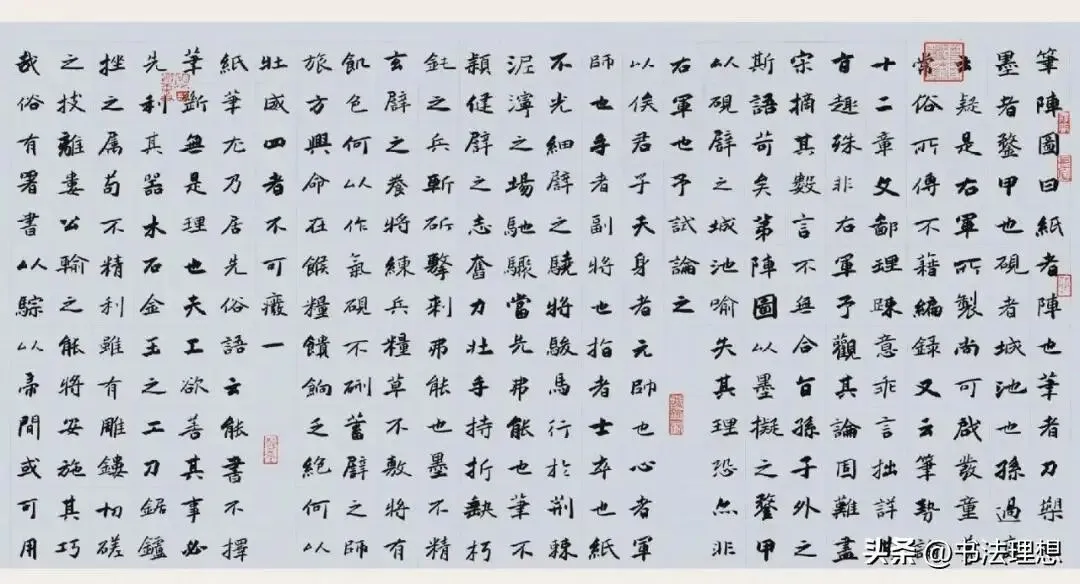 筆陣圖曰紙者陣也筆者刀
墨者鍪甲也硯者城池也孫過庭
云疑是右軍所製尚可啟發童蒙
常俗所傳不藉編錄又云筆勢論
十二章文鄙理疎意乖言拙詳其
旨趣殊非右軍予觀其論固難盡
宗摘其數言不無合旨孫子外之
斯語苛矣第陣圖以墨擬之鍪甲
以硯譬之城池喻失其理恐亦非
右軍也予試論之
以俟君子夫身者元帥也心者軍
師也手者副將也指者士卒也紙
不光細譬之驍將駿馬行於荊棘
泥濘之場馳驟當先弗能也筆不
穎健譬之志奮力壯手持折缺朽
鈍之兵斬斫擊刺弗能也墨不精
玄譬之養將練兵糧草不敷將有
飢色何以作氣硯不硎蓄譬之師
旅方興命在餱糧饋餉乏絕何以
壯威四者不可廢一
紙筆尤乃居先俗語云能書不擇
筆斷無是理也夫工欲善其事必
先利其器木石金玉之工刀鋸鑪
挫之屬苟不精利雖有雕鏤切磋
之技離婁公輸之能將安施其巧
哉俗有署書以騣以帚間或可用
头条 @书法理想